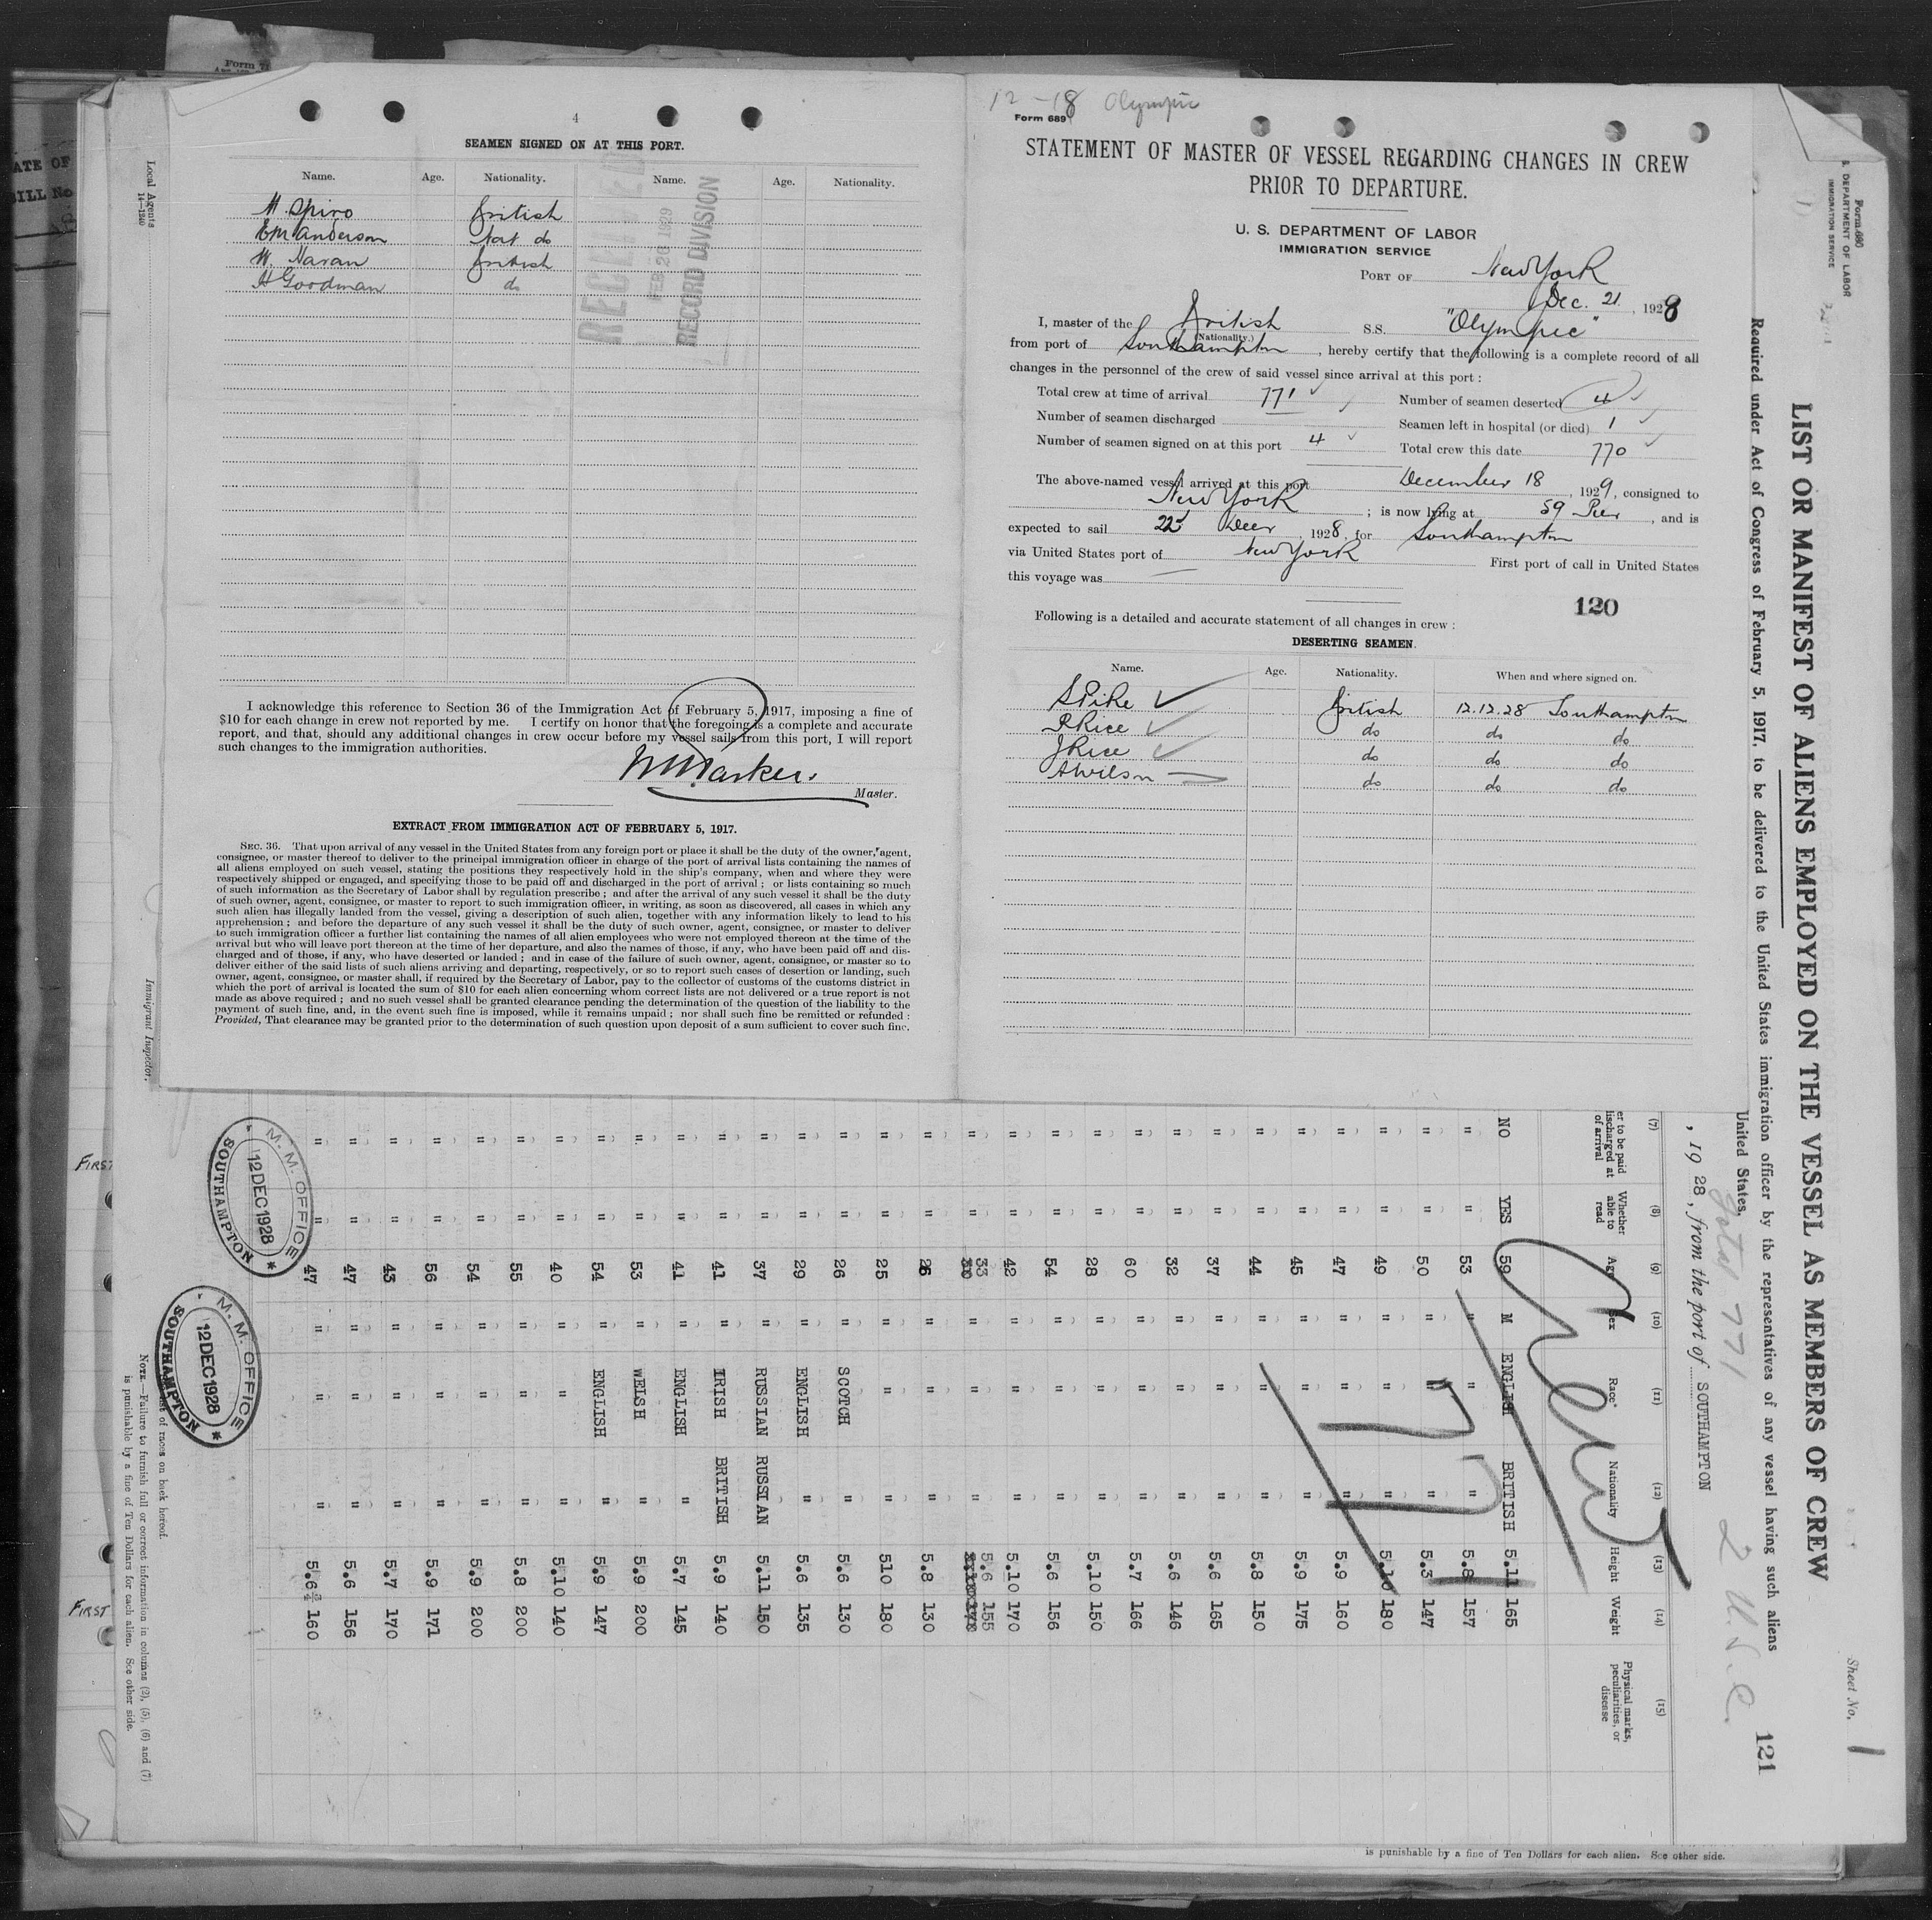 Form 7
ATE OF
BILL No
4
SEAMEN SIGNED ON AT THIS PORT.
Name. Age. Nationality. Name. Age. Nationality.
H Spiro British
EM Anderson Not do
W. Navan British
H Goodman do
FEB 26 1929
RECORD DIVISION
I acknowledge this reference to Section 36 of the Immigration Act of February 5, 1917, imposing a fine of
$10 for each change in crew not reported by me. I certify on honor that the foregoing is a complete and accurate
report, and that, should any additional changes in crew occur before my vessel sails from this port, I will report
such changes to the immigration authorities.
Parker.
Master.
EXTRACT FROM IMMIGRATION ACT OF FEBRUARY 5, 1917.
SEC. 36. That upon arrival of any vessel in the United States from any foreign port or place it shall be the duty of the owner, agent,
consignee, or master thereof to deliver to the principal immigration officer in charge of the port of arrival lists containing the names of
all aliens employed on such vessel, stating the positions they respectively hold in the ship's company, when and where they were
respectively shipped or engaged, and specifying those to be paid off and discharged in the port of arrival; or lists containing so much
of such information as the Secretary of Labor shall by regulation prescribe; and after the arrival of any such vessel it shall be the duty
of such owner, agent, consignee, or master to report to such immigration officer, in writing, as soon as discovered, all cases in which any
such alien has illegally landed from the vessel, giving a description of such alien, together with any information likely to lead to his
apprehension; and before the departure of any such vessel it shall be the duty of such owner, agent, consignee, or master to deliver
to such immigration officer a further list containing the names of all alien employees who were not employed thereon at the time of the
arrival but who will leave port thereon at the time of her departure, and also the names of those, if any, who have been paid off and dis-
charged and of those, if any, who have deserted or landed; and in case of the failure of such owner, agent, consignee, or master so to
deliver either of the said lists of such aliens arriving and departing, respectively, or so to report such cases of desertion or landing, such
owner, agent, consignee, or master shall, if required by the Secretary of Labor, pay to the collector of customs of the customs district in
which the port of arrival is located the sum of $10 for each alien concerning whom correct lists are not delivered or a true report is not
made as above required; and no such vessel shall be granted clearance pending the determination of the question of the liability to the
payment of such fine, and, in the event such fine is imposed, while it remains unpaid; nor shall such fine be remitted or refunded:
Provided, That clearance may be granted prior to the determination of such question upon deposit of a sum sufficient to cover such fine.
12-18 Olympic
Form 689
STATEMENT OF MASTER OF VESSEL REGARDING CHANGES IN CREW
PRIOR TO DEPARTURE.
U. S. DEPARTMENT OF LABOR
IMMIGRATION SERVICE
PORT OF New York
Dec. 21, 1928
I, master of the British S.S. "Olympic"
(Nationality.)
from port of Southampton, hereby certify that the following is a complete record of all
changes in the personnel of the crew of said vessel since arrival at this port:
Total crew at time of arrival 771 Number of seamen deserted 4
Number of seamen discharged Seamen left in hospital (or died) 1
Number of seamen signed on at this port 4 Total crew this date 770
The above-named vessel arrived at this port December 18, 1929, consigned to
New York; is now lying at 59 Pier, and is
expected to sail 22d Decr, 1928, for Southampton
via United States port of New York First port of call in United States
this voyage was
120
Following is a detailed and accurate statement of all changes in crew:
DESERTING SEAMEN.
Name. Age. Nationality. When and where signed on.
S Pike British 12.12.28 Southampton
P Rice do do do
J Rice do do do
A Wilson do do do
Local Agents
14—1240
Immigrant Inspector.
Form 680
S. DEPARTMENT OF LABOR
IMMIGRATION SERVICE
Sheet No. 1
LIST OR MANIFEST OF ALIENS EMPLOYED ON THE VESSEL AS MEMBERS OF CREW
Required under Act of Congress of February 5, 1917, to be delivered to the United States immigration officer by the representatives of any vessel having such aliens
United States,
121
Total 771 2 U.S.C.
, 1928, from the port of SOUTHAMPTON
(7) (8) (9) (10) (11) (12) (13) (14) (15)
er to be paid discharged at of arrival Whether able to read Age Sex Race* Nationality Height Weight Physical marks, peculiarities, or disease
Crew
771
NO YES 59 M ENGLISH BRITISH 5.11 165
" " 53 " " " 5.8 157
" " 50 " " " 5.3 147
" " 49 " " " 5.10 180
" " 47 " " " 5.9 160
" " 45 " " " 5.9 175
" " 44 " " " 5.8 150
" " 37 " " " 5.6 165
" " 32 " " " 5.6 146
" " 60 " " " 5.7 166
" " 28 " " " 5.10 150
" " 54 " " " 5.6 156
" " 42 " " " 5.10 170
" " 33 " " " 5.6 155
" " 26 " " " 5.8 130
" " 25 " " " 510 180
" " 26 " SCOTCH " 5.6 130
" " 29 " ENGLISH " 5.6 135
" " 37 " RUSSIAN RUSSIAN 5.11 150
" " 41 " IRISH BRITISH 5.9 140
" " 41 " ENGLISH " 5.7 145
" " 53 " WELSH " 5.9 200
" " 54 " ENGLISH " 5.9 147
" " 40 " " " 5.10 140
" " 55 " " " 5.8 200
" " 54 " " " 5.9 200
" " 56 " " " 5.9 171
" " 43 " " " 5.7 170
" " 47 " " " 5.6 156
" " 47 " " " 5.6¾ 160
M. M. OFFICE
12 DEC 1928
SOUTHAMPTON
M. M. OFFICE
12 DEC 1928
SOUTHAMPTON
of races on back hereof.
NOTE.—Failure to furnish full or correct information in columns (2), (5), (6) and (7)
is punishable by a fine of Ten Dollars for each alien. See other side.
FIRST
FIRST
is punishable by a fine of Ten Dollars for each alien. See other side.